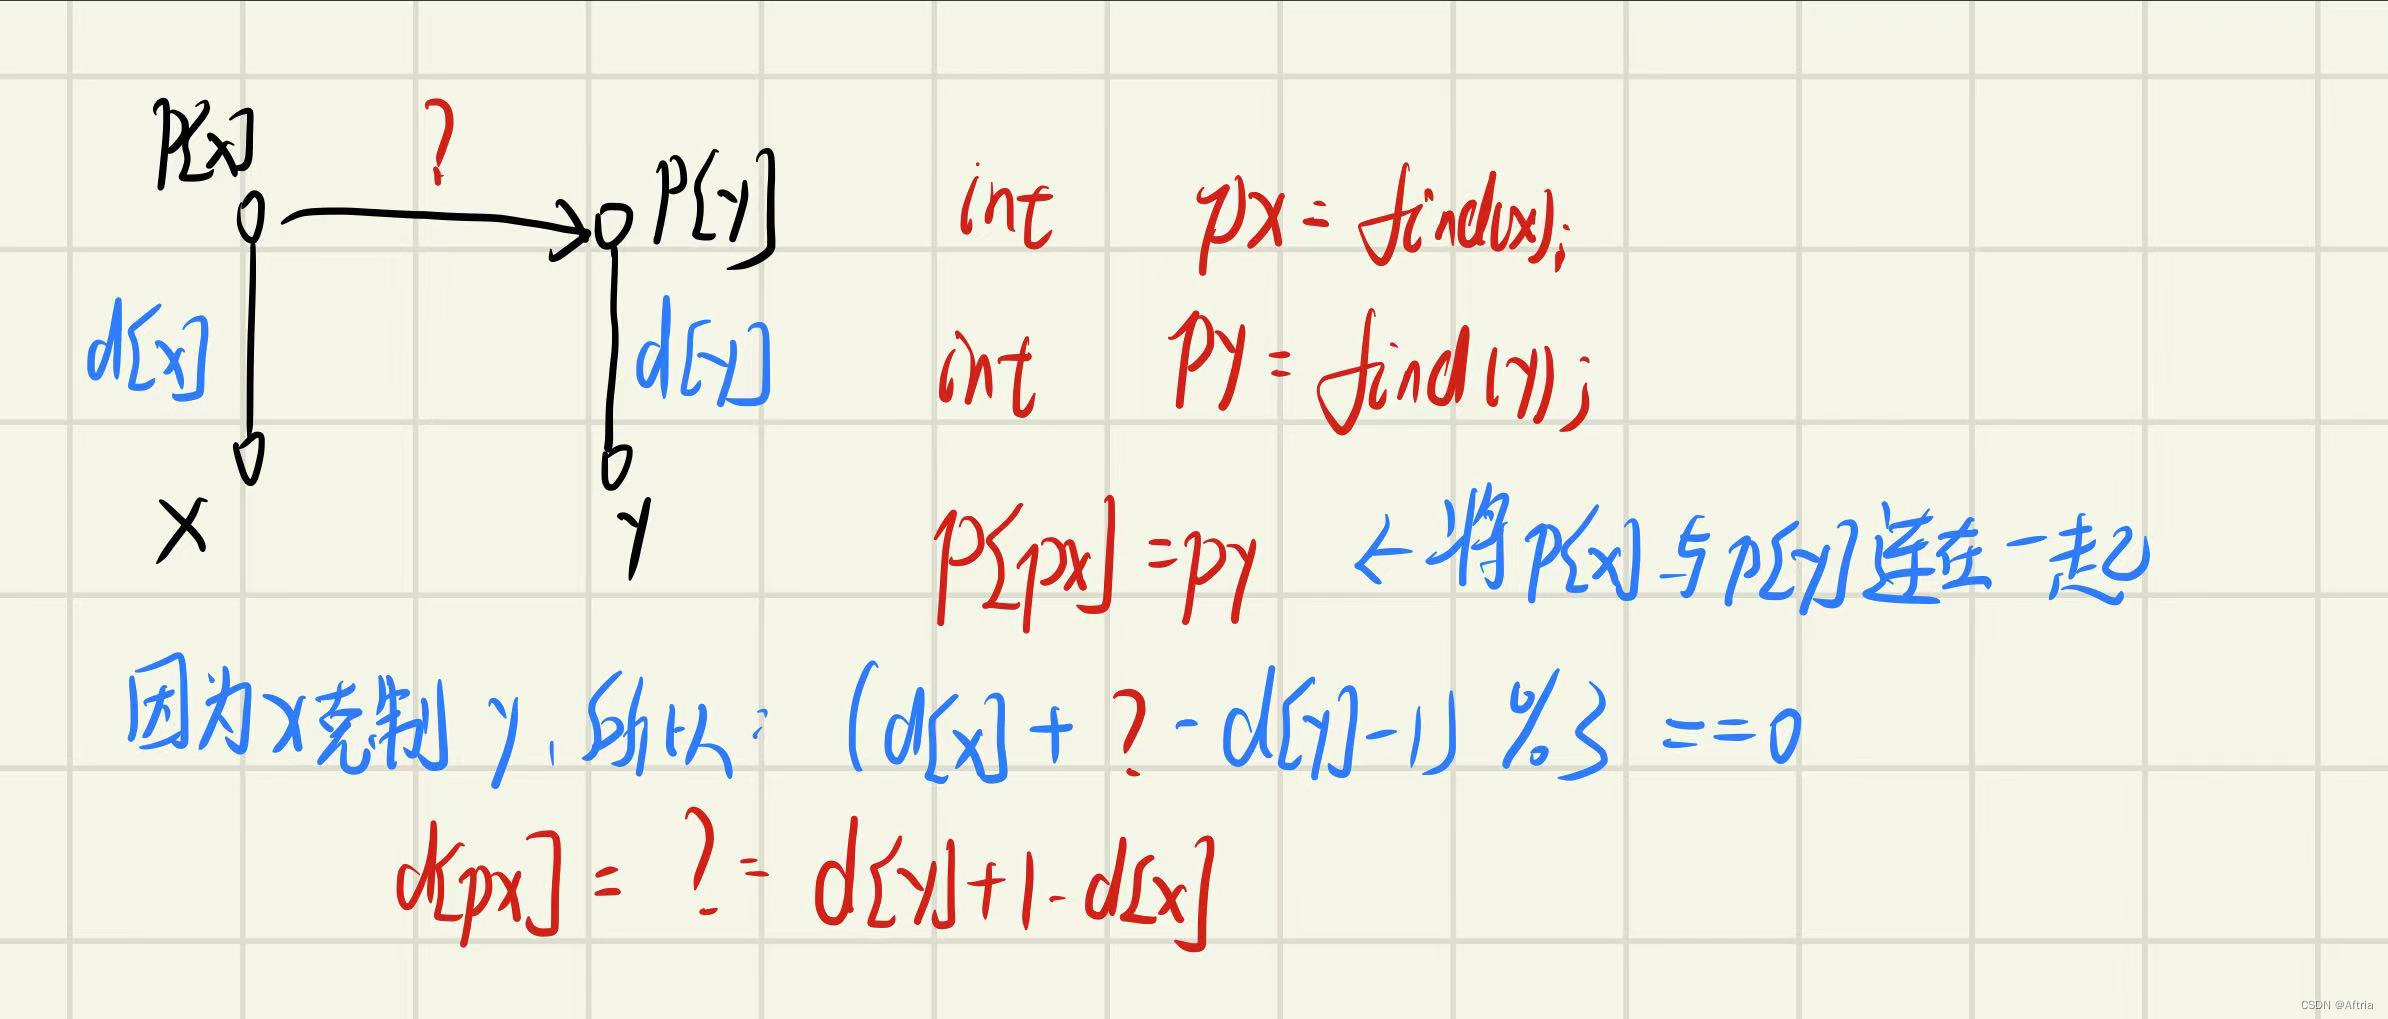 p[x]
?
p[y]
d[x]
d[y]
x
y
int px = find(x);
int py = find(y);
p[px] = py ← 将p[x]与p[y]连在一起
因为x克制y,所以: (d[x] + ? - d[y] - 1) % 3 == 0
d[px] = ? = d[y] + 1 - d[x]
CSDN @Aftria